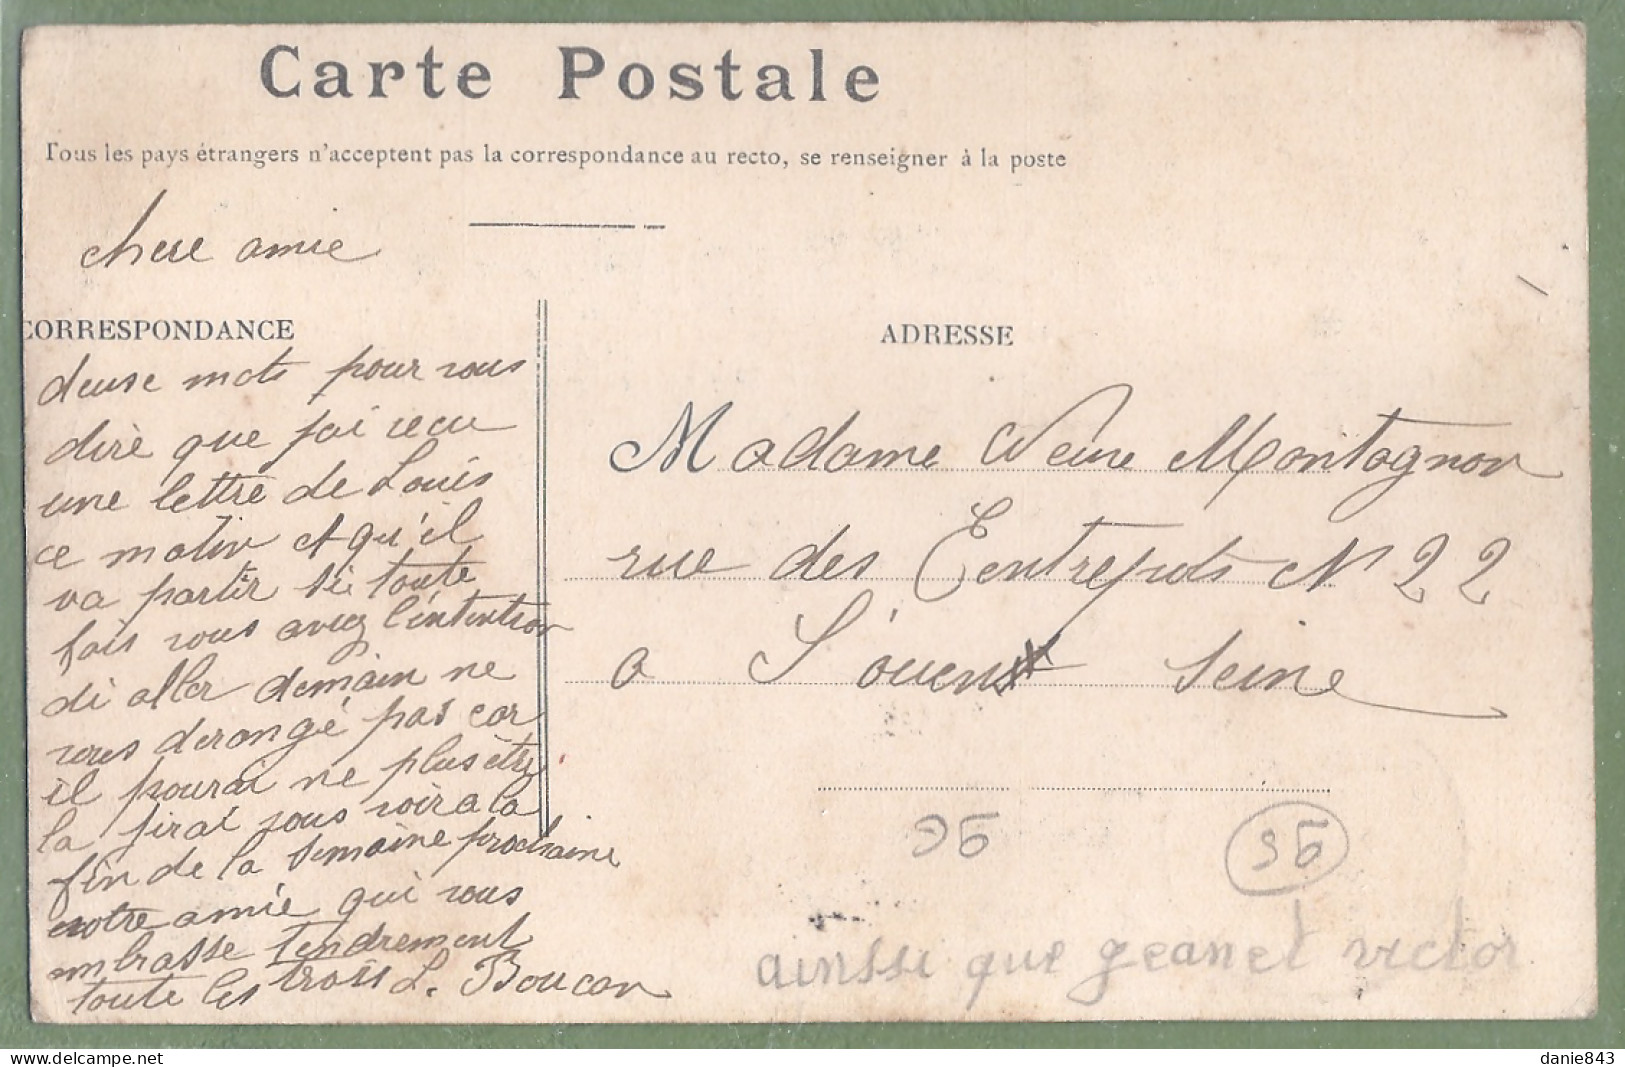 Carte Postale
Tous les pays étrangers n'acceptent pas la correspondance au recto, se renseigner à la poste
chere amie
CORRESPONDANCE
deuse mots pour vous
dire que jai recu
une lettre de Louis
ce matin et qu'il
va partir si toute
fois vous aviez l'intention
di aller demain ne
vous derongé pas car
il pourai ne plus être
la jirai vous voir a la
fin de la semaine prochaine
votre amie qui vous
embrasse tendrement
toute les trois L. Boucan
ADRESSE
Madame Veuve Montagnon
rue des Entrepots N 22
a S'ouen Seine
36
36
ainssi que geanet victor
danie843